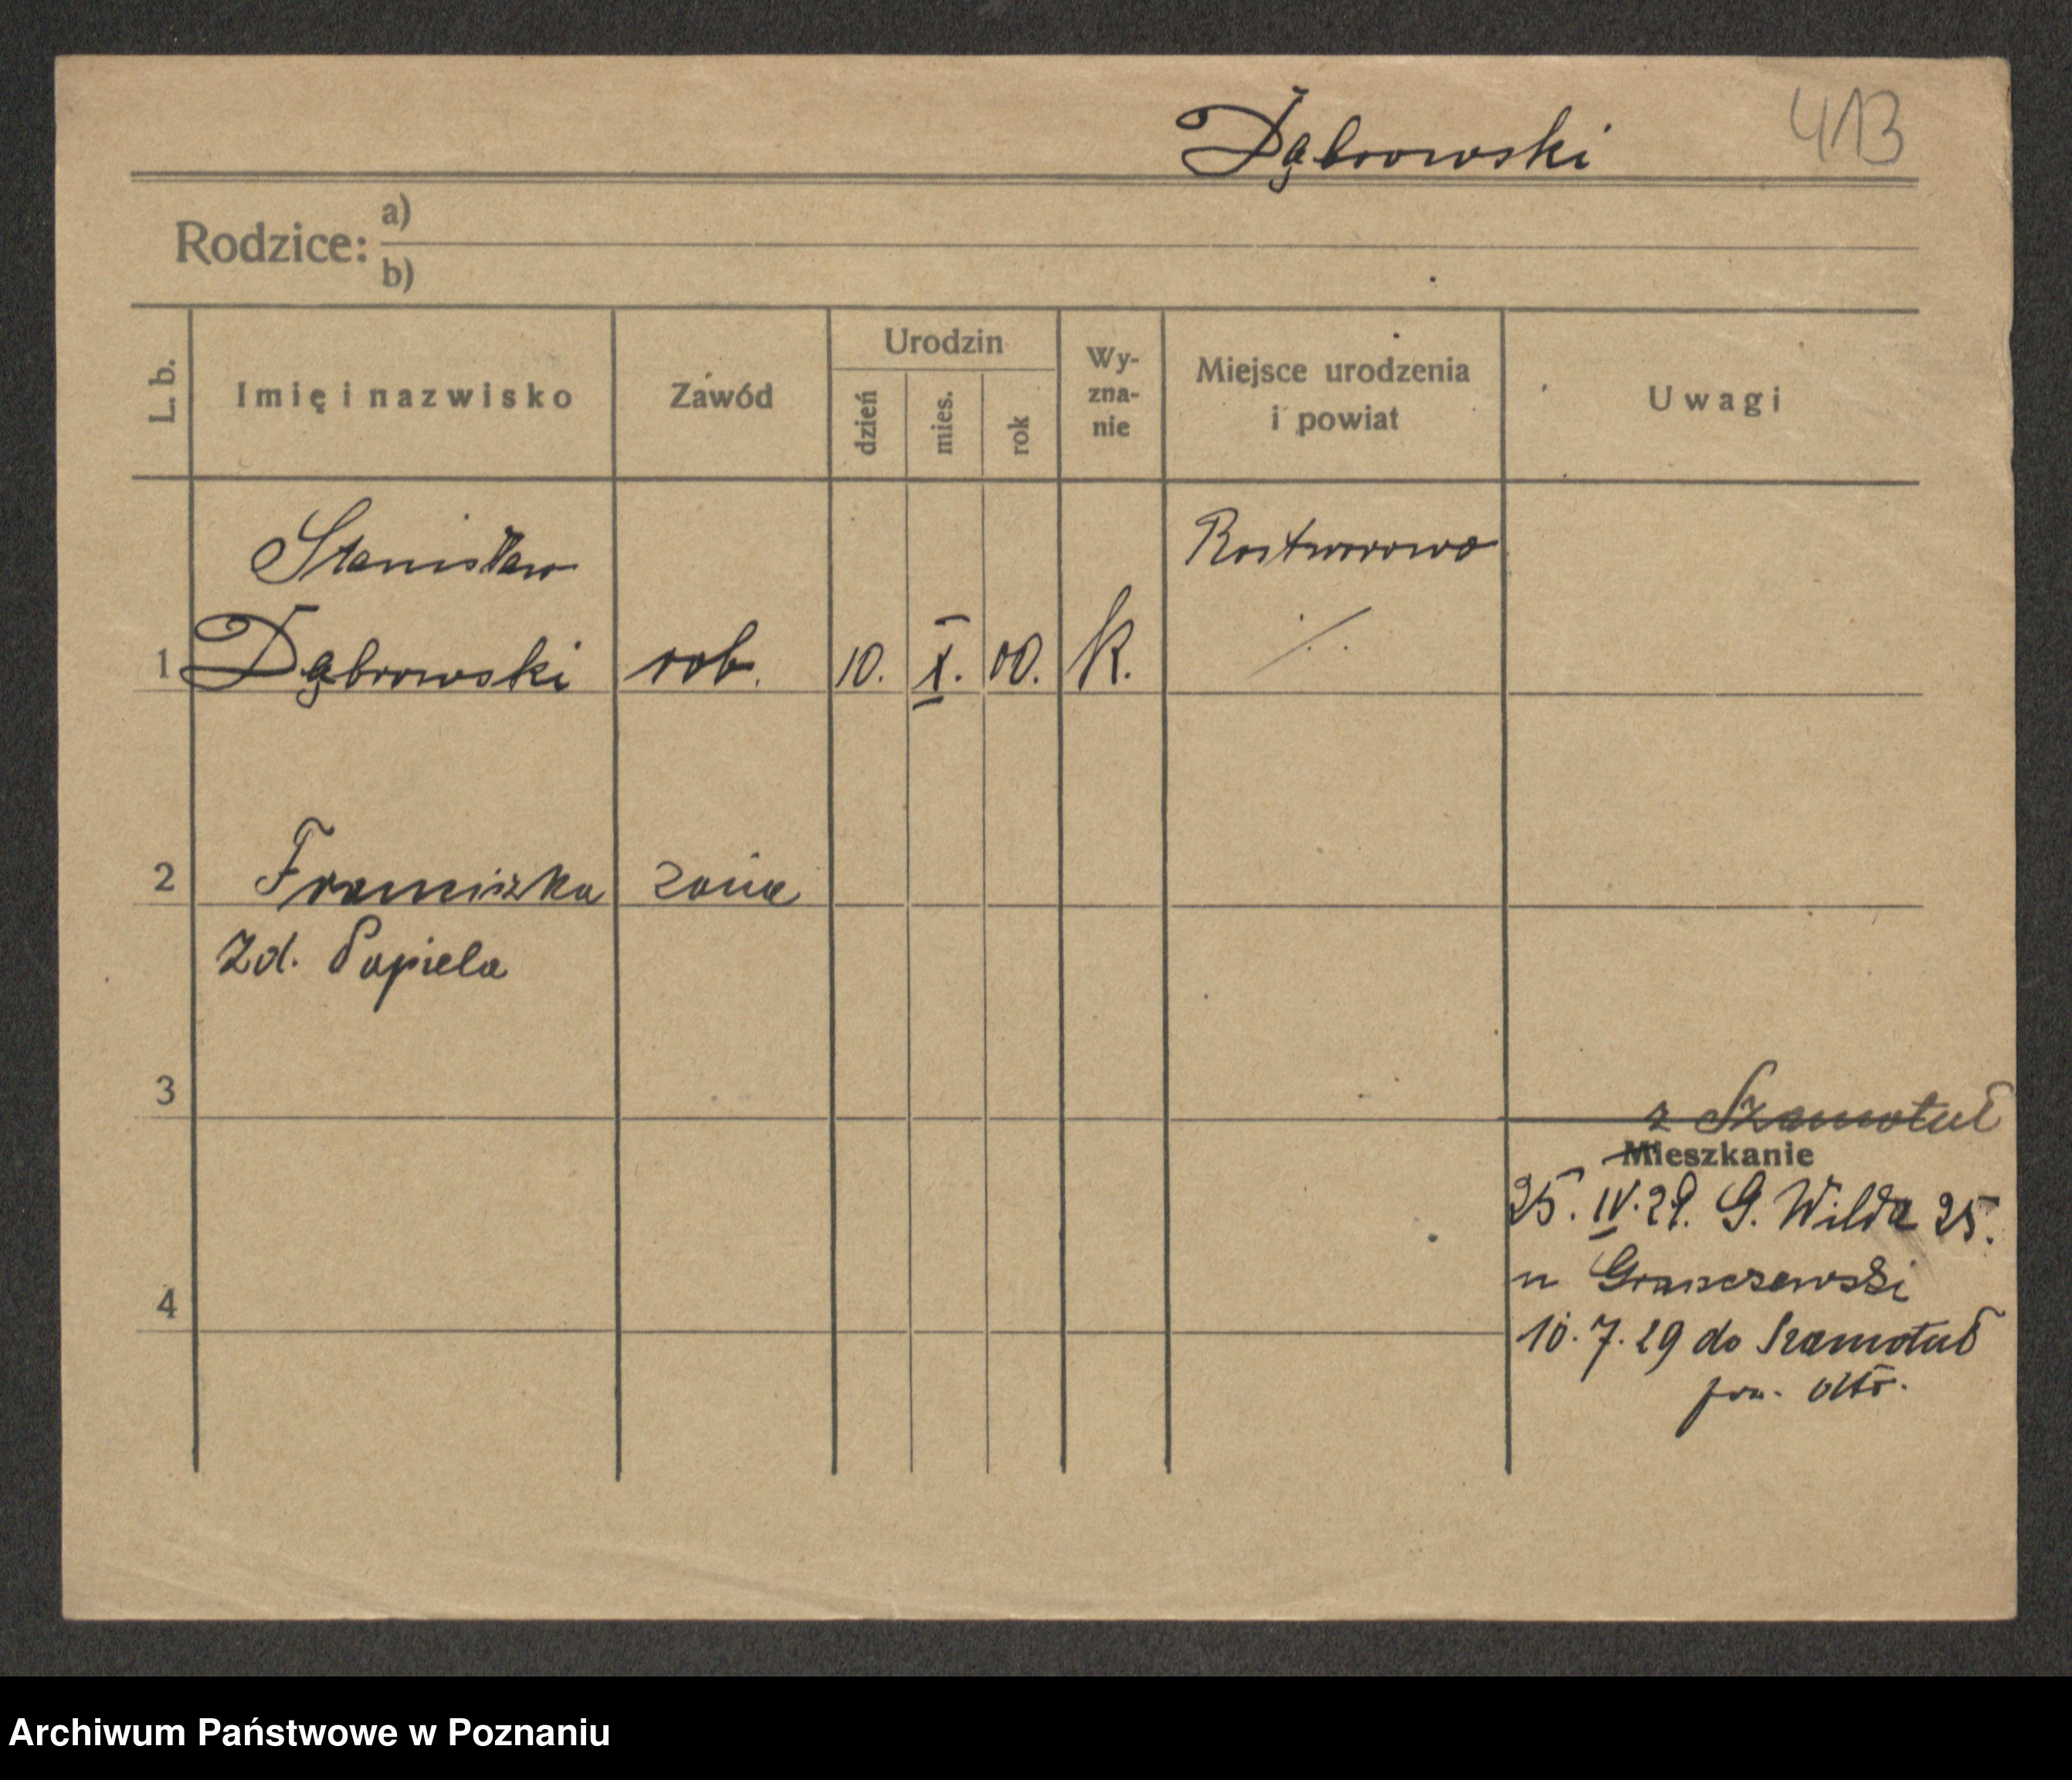 Dąbrowski
413
Rodzice: a)
b)
L. b.
Imię i nazwisko
Zawód
Urodzin
dzień
mies.
rok
Wy-
zna-
nie
Miejsce urodzenia
i powiat
Uwagi
Stanisław
Rostworowo
1 Dąbrowski rob. 10. X. 00. k. ./.
2 Franciszka żona
Zd. Papiela
3
z Szamotuł
Mieszkanie
25. IV. 29. G. Wilda 25.
u
4
10. 7. 29 do Szamotuł
Archiwum Państwowe w Poznaniu